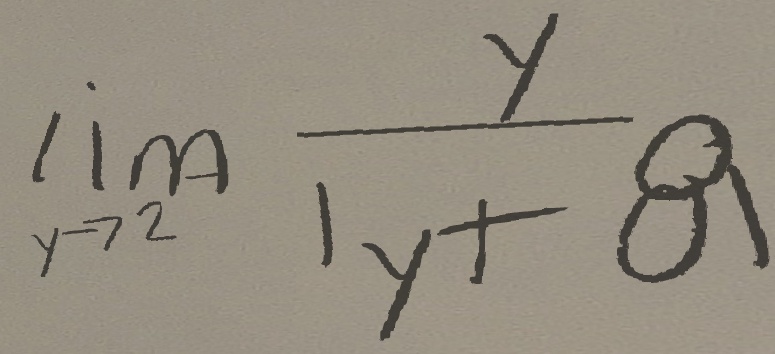 lim y→2 y/|y+8|